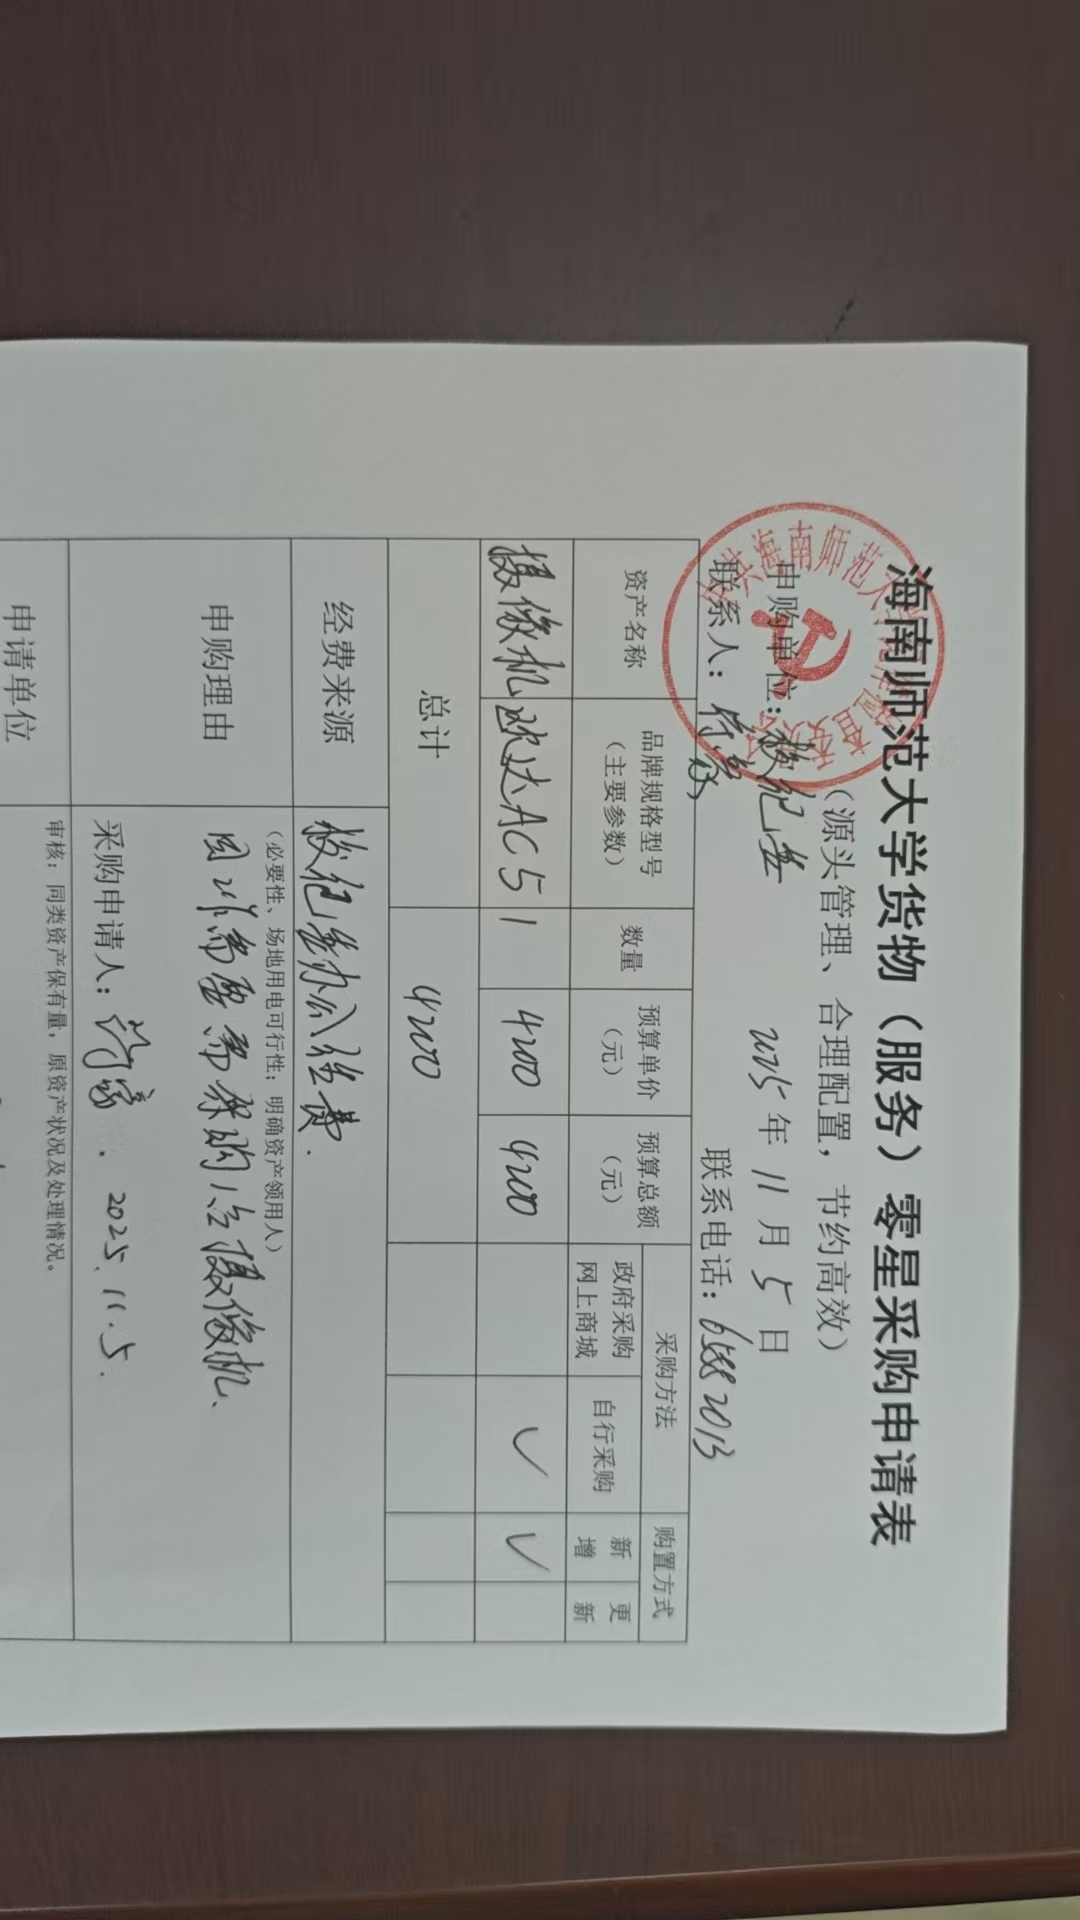 海南师范大学货物（服务）零星采购申请表
（源头管理、合理配置，节约高效）
申购单位：校纪委 2025年11月5日
联系人：符 联系电话：65882013
资产名称 品牌规格型号（主要参数） 数量 预算单价（元） 预算总额（元） 采购方法 购置方式
政府采购网上商城 自行采购 新增 更新
摄像机 欧达AC5 1 4200 4200 ✓ ✓
总计 4200
经费来源 校纪委办公经费.
申购理由 （必要性、场地用电可行性；明确资产领用人）
因工作需要需采购1台摄像机、
采购申请人： 2025.11.5.
申请单位 审核：同类资产保有量，原资产状况及处理情况。